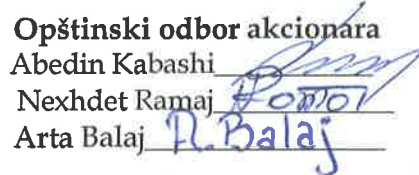 Opštinski odbor akcionara
Abedin Kabashi
Nexhdet Ramaj
Arta Balaj A. Balaj